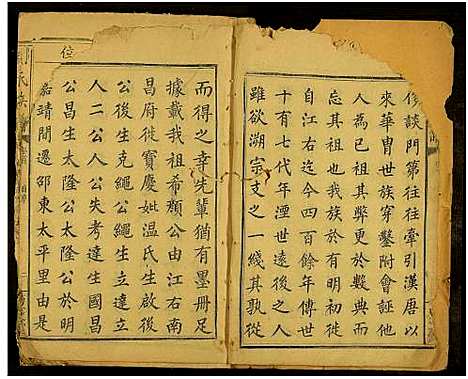 侈談門第往往牽引漢唐以
來華冑世族穿鑿附會誣他
人為已祖其弊更甚於數典而
忘其祖也我族於有明初徙
自江右迄今四百餘年傳世
十有七代年湮世遠後之人
雖欲溯宗支之一綫其孰從
而得之幸先輩猶有墨冊足
據戴我祖希顏公由江右南
昌府徙寶慶妣温氏生啟後
公後生克繩公繩生立達立
人二公人公失考達生國昌
公昌生太隆公太隆公於明
嘉靖間遷邵東太平里由是